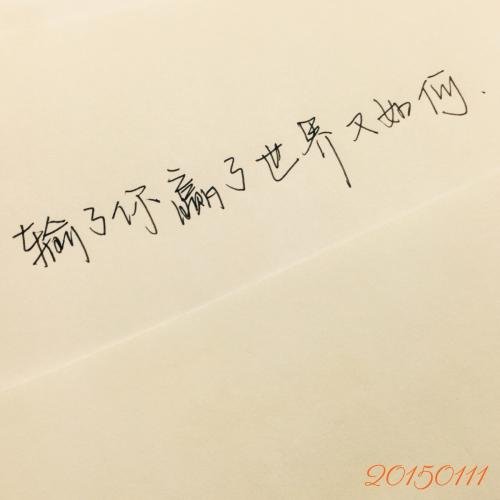 输了你赢了世界又如何.
20150111